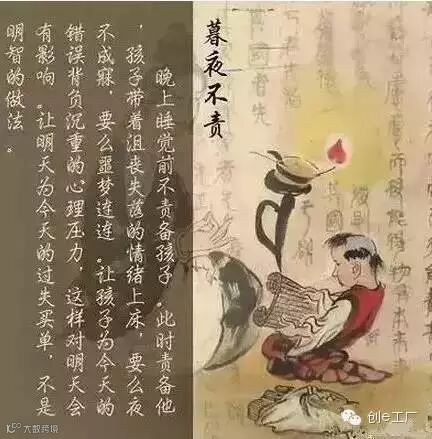 暮夜不责
晚上睡觉前不责备孩子.此时责备他
，孩子带着沮丧失落的情绪上床，要么夜
不成寐，要么噩梦连连.让孩子为今天的
错误背负沉重的心理压力，这样对明天会
有影响.让明天为今天的过失买单，不是
明智的做法。
大数跨境
创e工厂